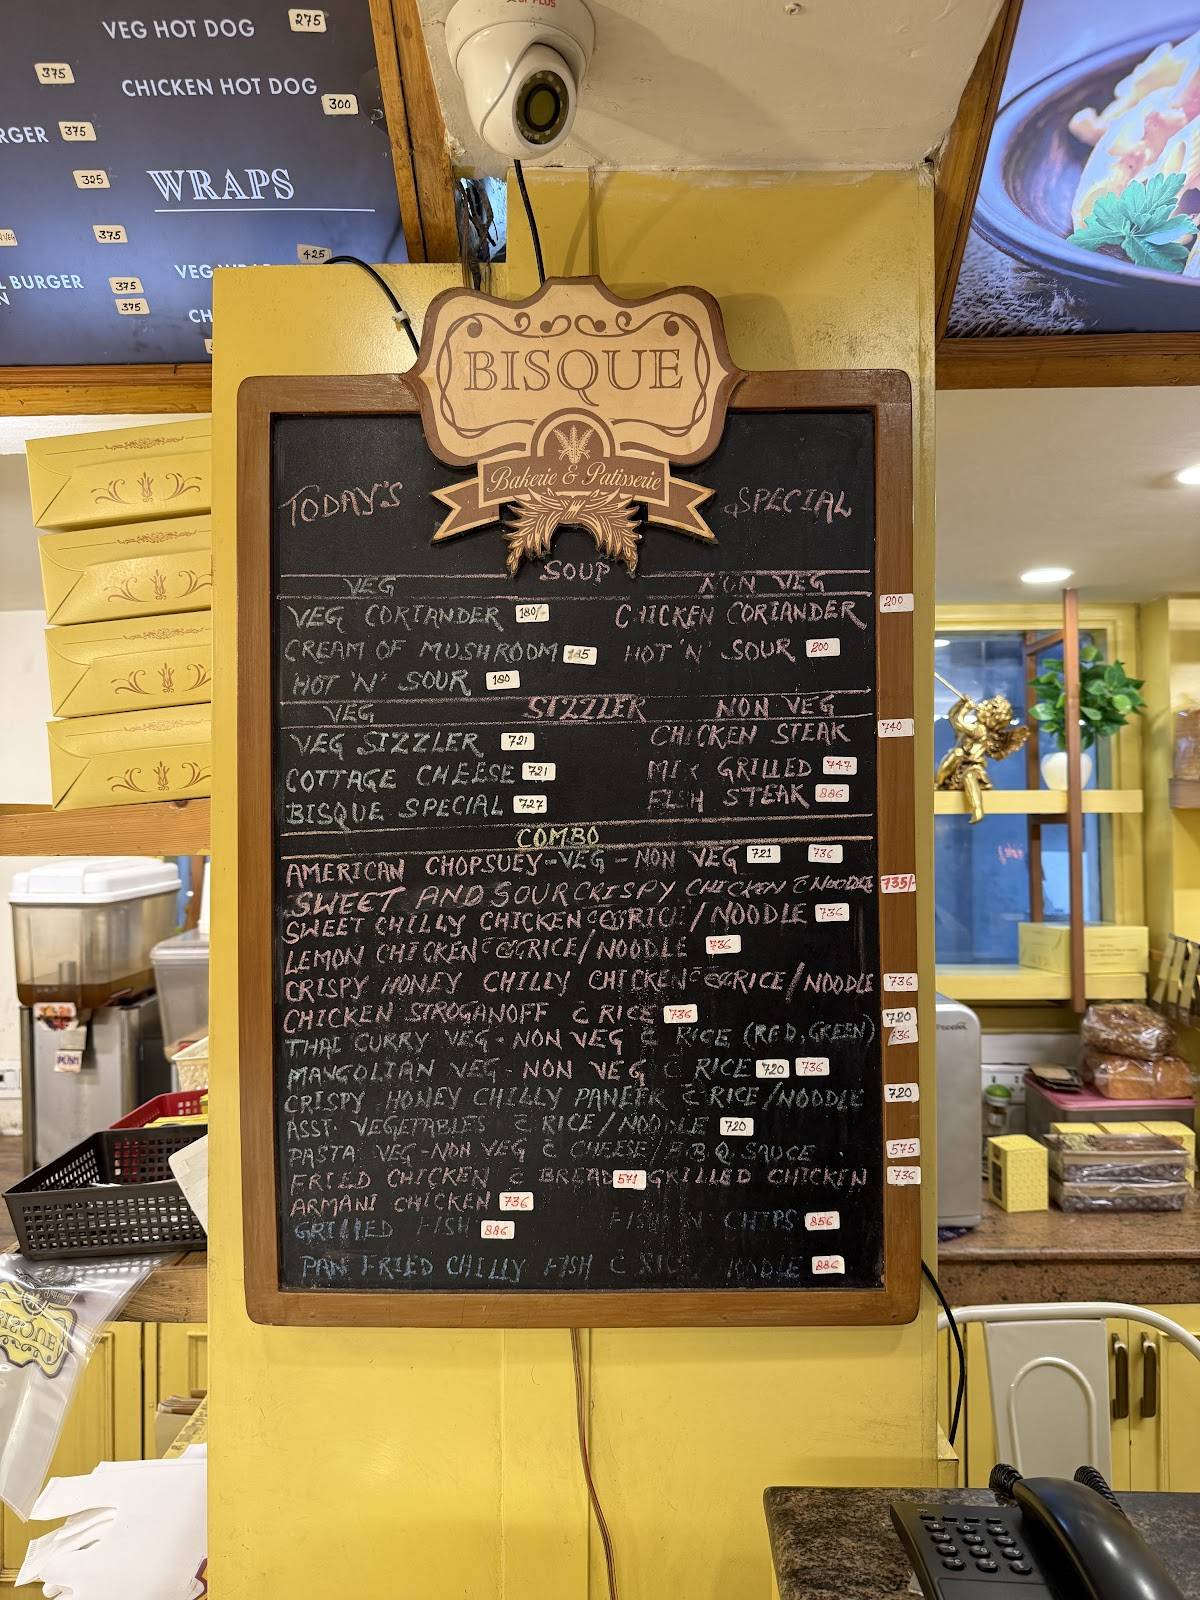 VEG HOT DOG 275
375
CHICKEN HOT DOG 300
RGER 375
325
WRAPS
375
425
L BURGER 375
375
VEG
CH
BISQUE
Bakerie & Patisserie
TODAY'S SPECIAL
SOUP
VEG NON VEG
VEG CORIANDER 180/- CHICKEN CORIANDER 200
CREAM OF MUSHROOM HOT 'N' SOUR 200
HOT 'N' SOUR 180
VEG SIZZLER NON VEG
VEG SIZZLER 721 CHICKEN STEAK 740
COTTAGE CHEESE 721 MIX GRILLED 747
BISQUE SPECIAL 727 FISH STEAK 886
COMBO
AMERICAN CHOPSUEY-VEG-NON VEG 721 736
SWEET AND SOUR CRISPY CHICKEN C̄ NOODLE 735/-
SWEET CHILLY CHICKEN C̄ RICE/NOODLE 736
LEMON CHICKEN C̄ RICE/NOODLE 736
CRISPY HONEY CHILLY CHICKEN C̄ RICE/NOODLE 736
CHICKEN STROGANOFF C̄ RICE 736
THAI CURRY VEG-NON VEG C̄ RICE (RED,GREEN) 720 736
MANGOLIAN VEG-NON VEG C̄ RICE 720 736
CRISPY HONEY CHILLY PANEER C̄ RICE/NOODLE 720
ASST. VEGETABLES C̄ RICE/NOODLE 720
PASTA VEG-NON VEG C̄ CHEESE/B.B.Q SAUCE 575
FRIED CHICKEN C̄ BREAD 571 GRILLED CHICKEN 736
ARMANI CHICKEN 736
GRILLED FISH 886 FISH N CHIPS 856
PAN FRIED CHILLY FISH C̄ RICE/NOODLE 886